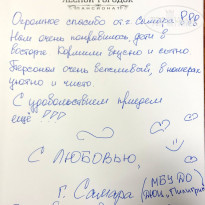 ЛЕСНОЙ ГОРОДОК
ПАНСИОНАТ
Огромное спасибо от г. Самара РРР
Нам очень понравилось, дети в
восторге Кормили вкусно и сытно
Персонал очень вежливый, в номерах
уютно и чисто.
С удовольствием приедем
ещё РРР
С ЛЮБОВЬЮ,
г. Самара (МБУ ДО